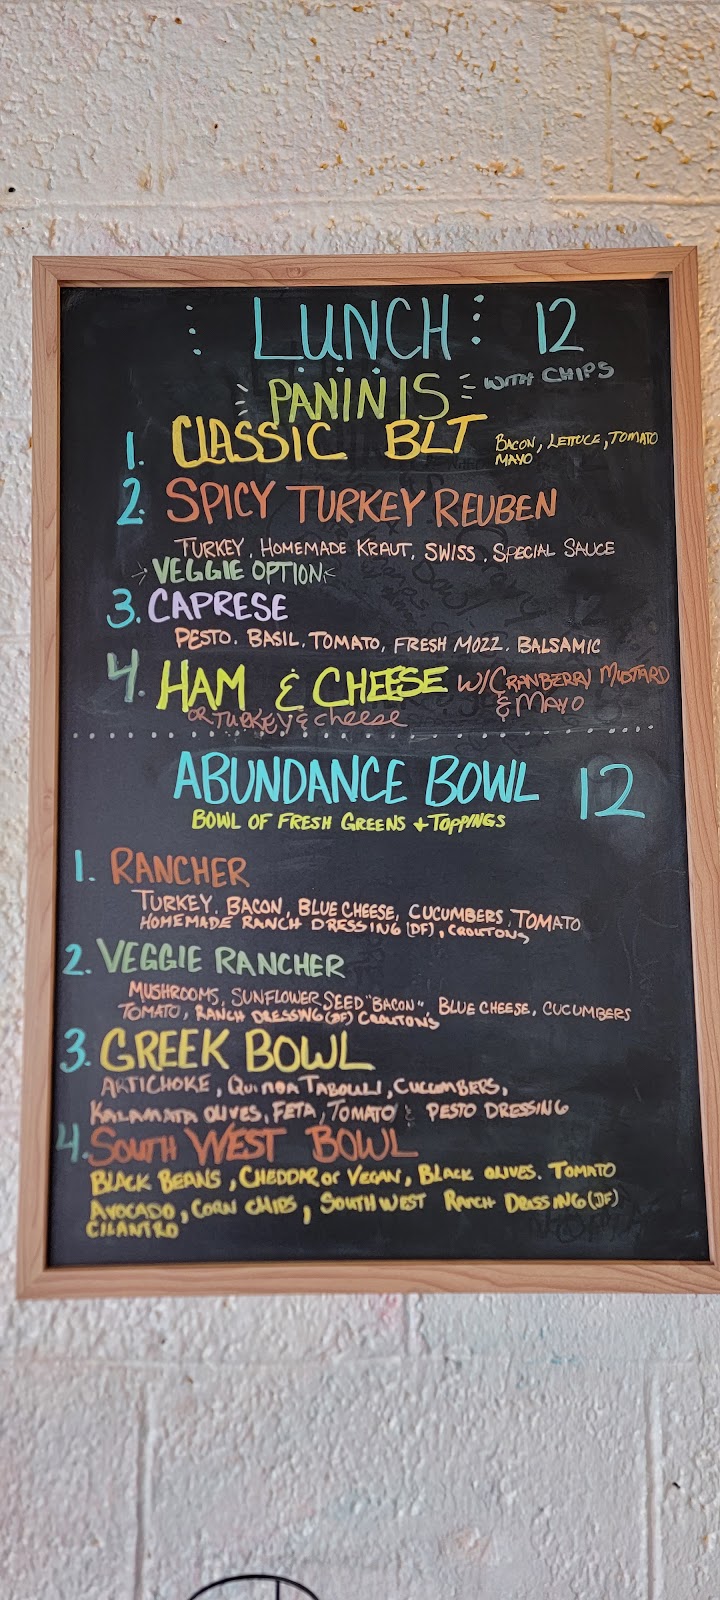 LUNCH 12
PANINIS WITH CHIPS
1. CLASSIC BLT BACON, LETTUCE, TOMATO
MAYO
2. SPICY TURKEY REUBEN
TURKEY, HOMEMADE KRAUT, SWISS, SPECIAL SAUCE
VEGGIE OPTION
3. CAPRESE
PESTO. BASIL. TOMATO, FRESH MOZZ. BALSAMIC
4. HAM & CHEESE W/CRANBERRY MUSTARD
& MAYO
OR TURKEY & cheese
ABUNDANCE BOWL 12
BOWL OF FRESH GREENS + TOPPINGS
1. RANCHER
TURKEY, BACON, BLUE CHEESE, CUCUMBERS, TOMATO
HOMEMADE RANCH DRESSING (DF), CROUTONS
2. VEGGIE RANCHER
MUSHROOMS, SUNFLOWER SEED "BACON", BLUE CHEESE, CUCUMBERS
TOMATO, RANCH DRESSING (DF) CROUTONS
3. GREEK BOWL
ARTICHOKE, QUINOA TABOULI, CUCUMBERS,
KALAMATA OLIVES, FETA, TOMATO & PESTO DRESSING
4. SOUTH WEST BOWL
BLACK BEANS, CHEDDAR OR VEGAN, BLACK OLIVES. TOMATO
AVOCADO, CORN CHIPS, SOUTHWEST RANCH DRESSING (DF)
CILANTRO